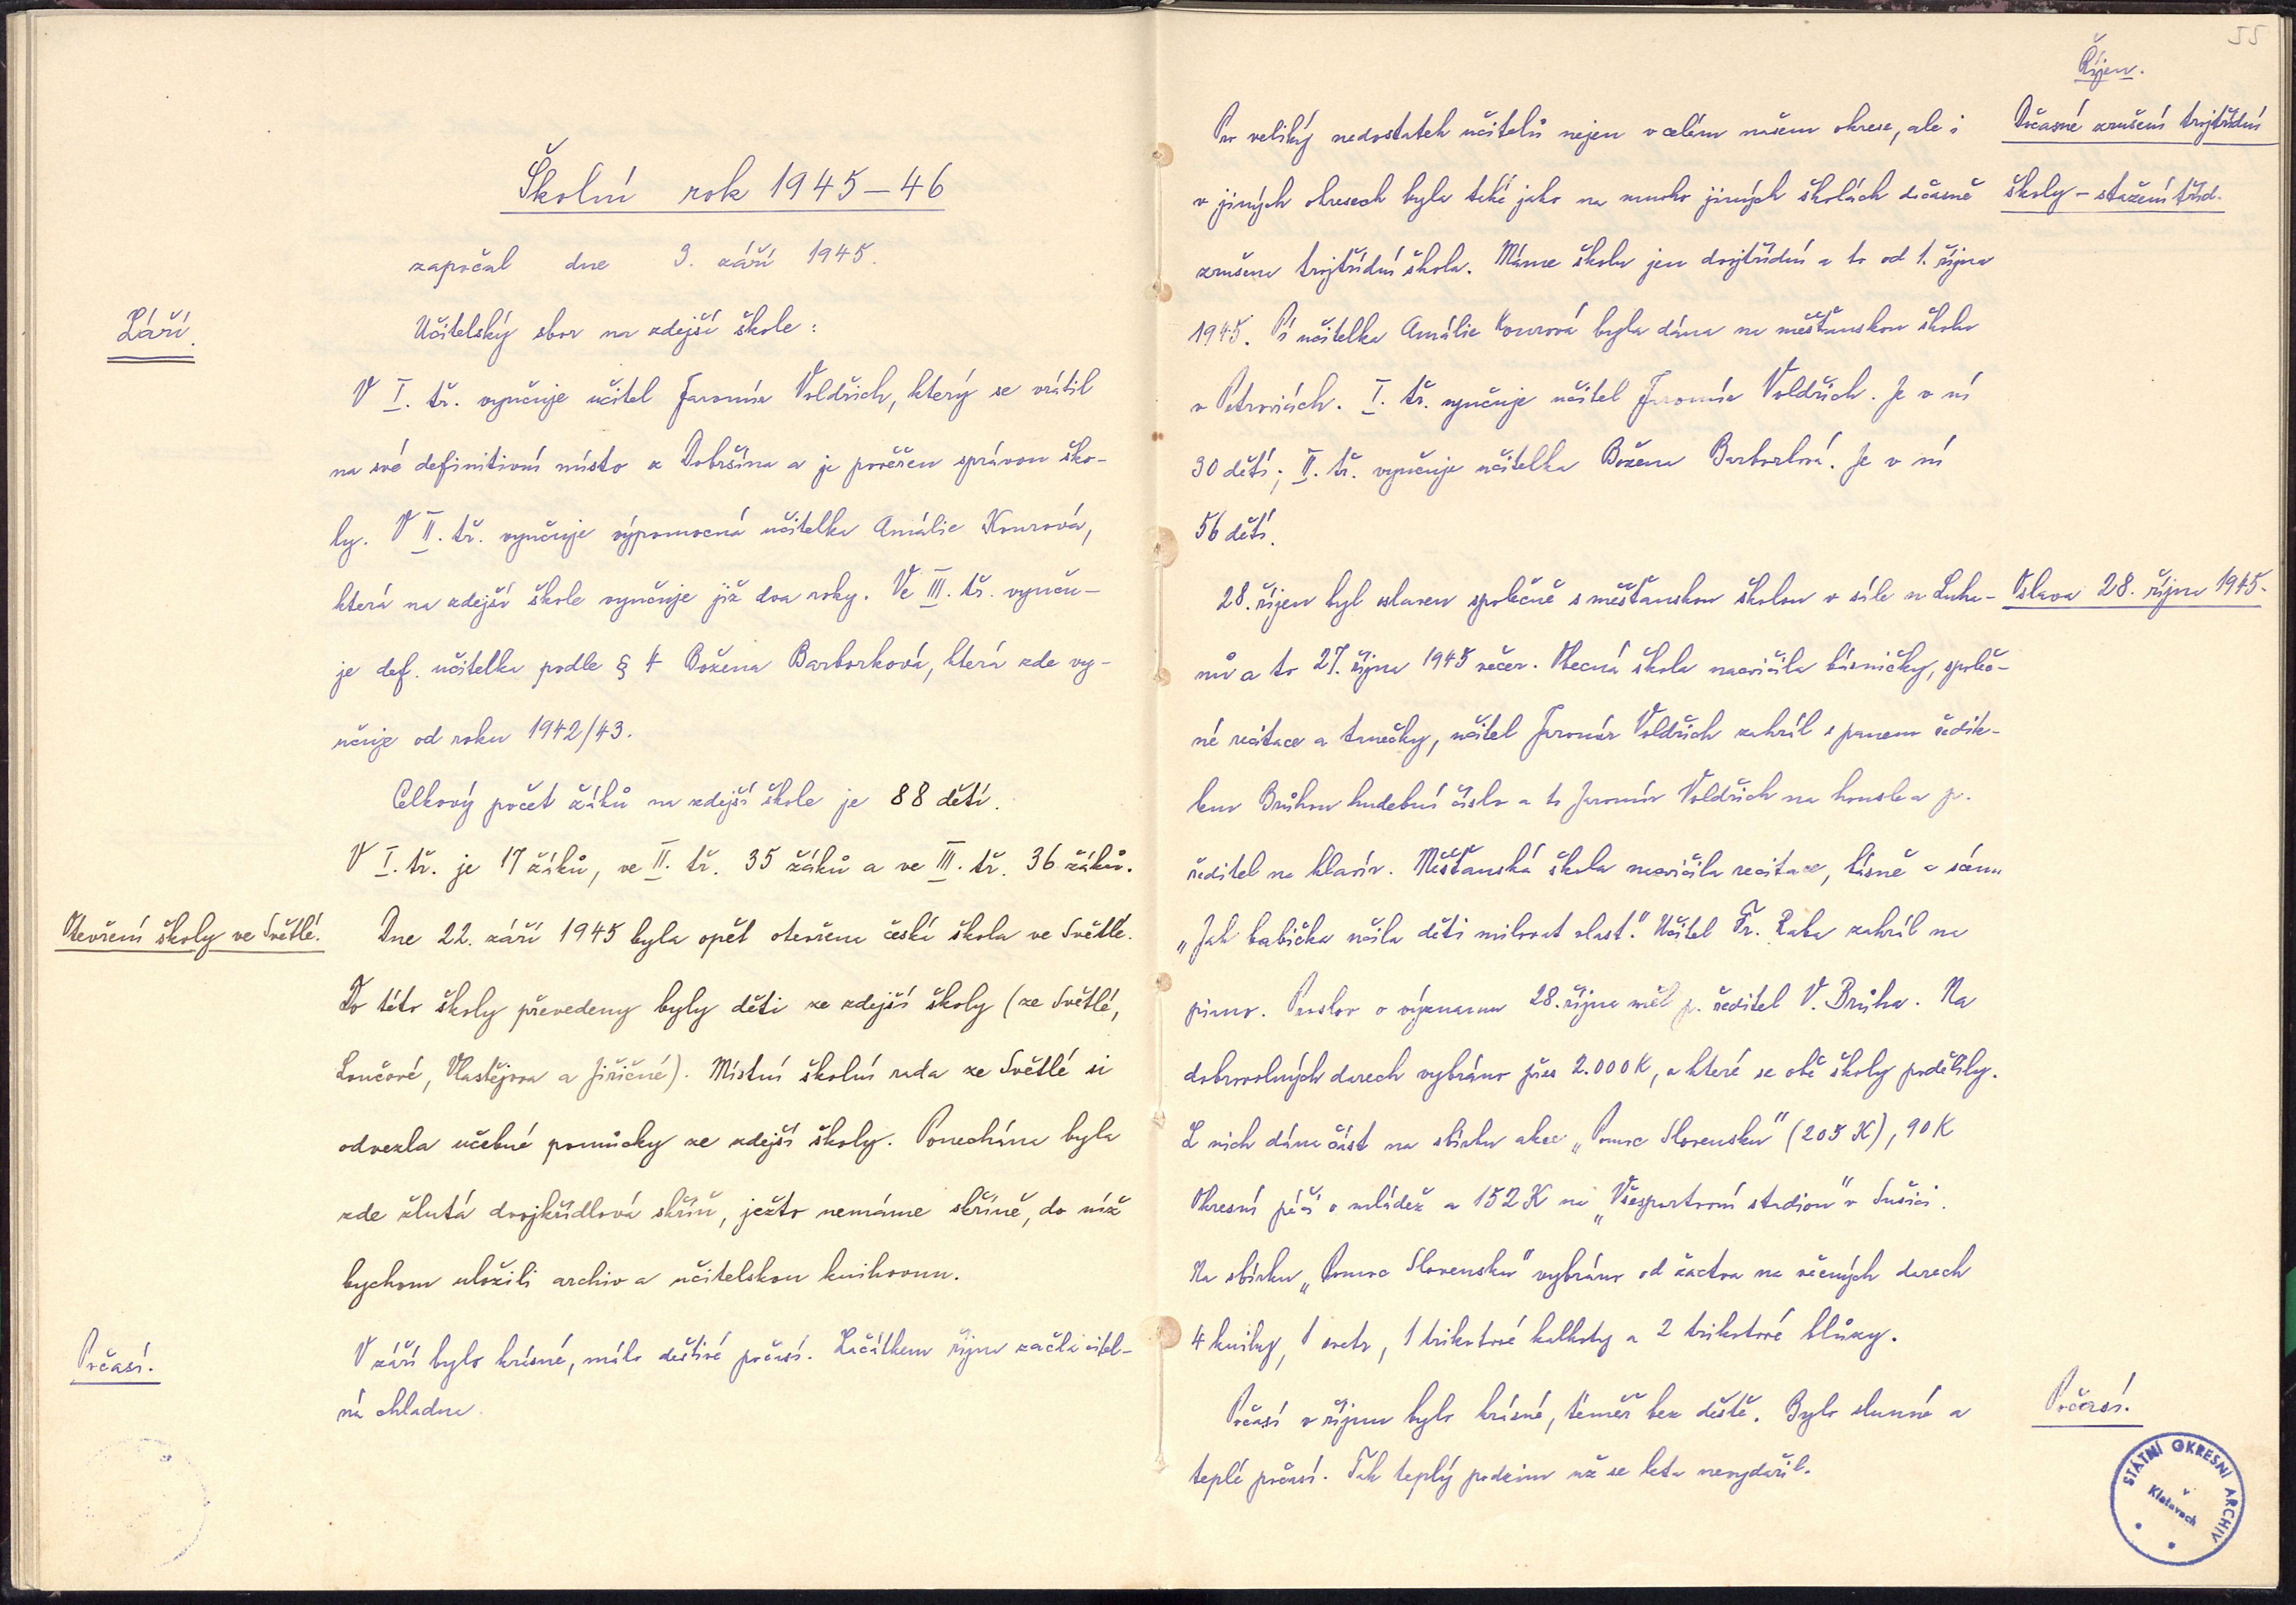 Školní rok 1945–46
započal dne 3. září 1945.
Září.
Učitelský sbor na zdejší škole:
V I. tř. vyučuje učitel Jaromír Voldřich, který se vrátil
na své definitivní místo z Dobršína a je pověřen správou ško-
ly. V II. tř. vyučuje výpomocná učitelka Amálie Kourová,
která na zdejší škole vyučuje již dva roky. Ve III. tř. vyuču-
je def. učitelka podle § 4 Božena Barborková, která zde vy-
učuje od roku 1942/43.
Celkový počet žáků na zdejší škole je 88 dětí.
V I. tř. je 17 žáků, ve II. tř. 35 žáků a ve III. tř. 36 žáků.
Otevření školy ve Světlé.
Dne 22. září 1945 byla opět otevřena česká škola ve Světlé.
Do této školy převedeny byly děti ze zdejší školy (ze Světlé,
Loučové, Vlastějova a Jiřičné). Místní školní rada ze Světlé si
odvezla učebné pomůcky ze zdejší školy. Ponechána byla
zde žlutá dvojkřídlová skříň, ježto nemáme skříně, do níž
bychom uložili archiv a učitelskou knihovnu.
Počasí.
V září bylo krásné, málo deštivé počasí. Začátkem října začla citel-
ná chladna.
55
Říjen.
Pro veliký nedostatek učitelů nejen v celém našem okrese, ale i
Dočasné zrušení trojtřídní
v jiných okresech byla také jako na mnoho jiných školách dočasně
školy – stažení tříd.
zrušena trojtřídní škola. Máme školu jen dvojtřídní a to od 1. října
1945. Pí učitelka Amálie Kourová byla dána na měšťanskou školu
v Petrovicích. I. tř. vyučuje učitel Jaromír Voldřich. Je v ní
30 dětí; II. tř. vyučuje učitelka Božena Barborková. Je v ní
56 dětí.
28. říjen byl oslaven společně s měšťanskou školou v sále u Luka-
Oslava 28. října 1945.
nů a to 27. října 1945 večer. Obecná škola nacvičila básničky, společ-
né recitace a tanečky, učitel Jaromír Voldřich zahrál s panem ředite-
lem Brůhou hudební číslo a to Jaromír Voldřich na housle a p.
ředitel na klavír. Měšťanská škola nacvičila recitace, básně a scénu
„Jak babička učila děti milovat vlast." Učitel Fr. Raba zahrál na
piano. Proslov o významu 28. října měl p. ředitel V. Brůha. Na
dobrovolných darech vybráno přes 2.000 K, o které se obě školy podělily.
Z nich dána část na sbírku akce „Pomoc Slovensku" (205 K), 90 K
Okresní péči o mládež a 152 K na „Všesportovní stadion" v Sušici.
Na sbírku „Pomoc Slovensku" vybráno od žactva na věcných darech
4 knihy, 1 svetr, 1 trikotové kalhoty a 2 trikotové blůzy.
Počasí v říjnu bylo krásné, téměř bez deště. Bylo slunné a
Počasí.
teplé počasí. Tak teplý podzim už se léta nevydařil.
STÁTNÍ OKRESNÍ ARCHIV
v
Klatovech